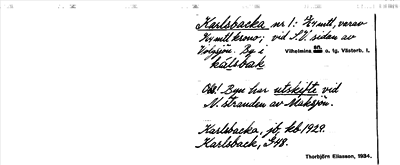 Karlsbacka nr 1: 7/8 mtl, varav
Kymtl krono; vid S.V. sidan av
Volgsjön. By i Vilhelmina sn. o. tg. Västerb. l.
kálsbak
Obs! Byn har utskifte vid
N. stranden av Maksjön.
Karlsbacka, jb, kb 1929.
Karlsback, S48.
Thorbjörn Eliasson, 1934.